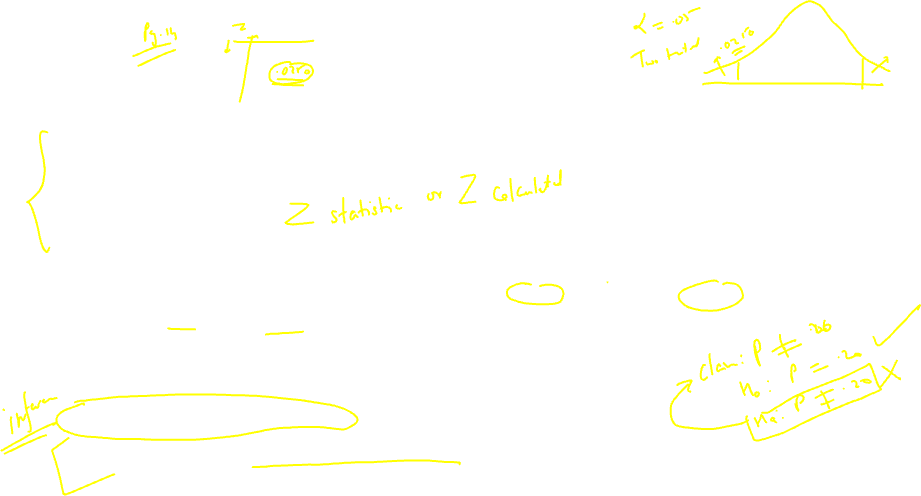 Pg. 14
Z
.0250
α = .05
Two tailed
.0250
Z statistic or Z calculated
Claim: P ≠ .20
H₀: P = .20
Hₐ: P ≠ .20